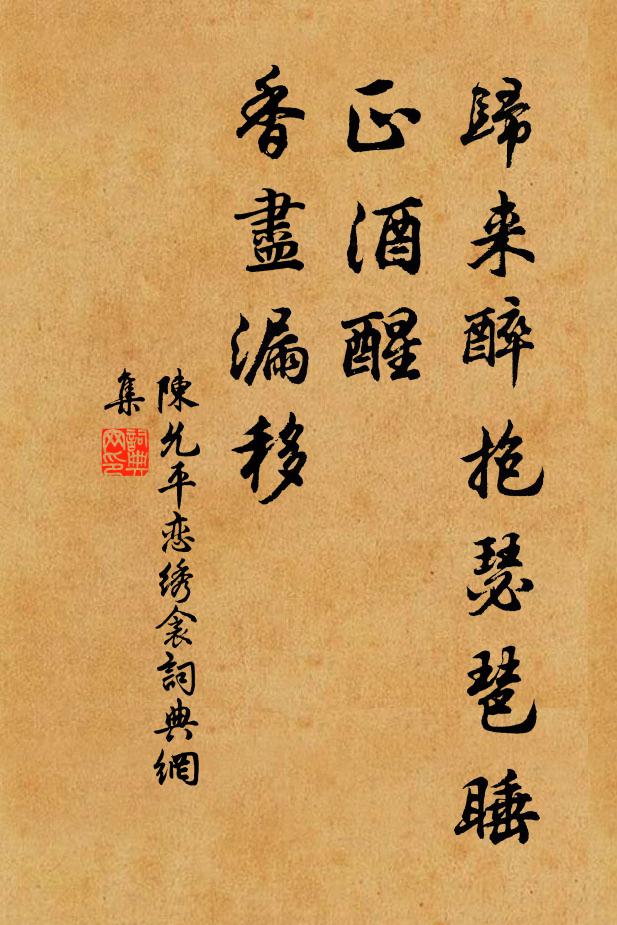 歸来醉抱瑟琶睡
正酒醒
香盡漏移
陳允平恋绣衾詞典網
集
詞典
网印